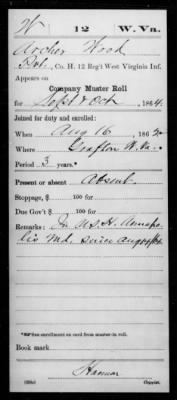 W 12 W. Va.
Archer Wood
Pvt., Co. H, 12 Reg't West Virginia Inf.
Appears on
Company Muster Roll
for Sept & Oct, 1864.
Joined for duty and enrolled:
When Aug 16, 1862
Where Grafton W. Va.
Period 3 years.*
Present or absent Absent
Stoppage, $ 100 for
Due Gov't $ 100 for
Remarks: In U.S. H. Annapo-
lis Md. since Aug /64
*See enrollment on card from muster-in roll.
Book mark:
Copyist.